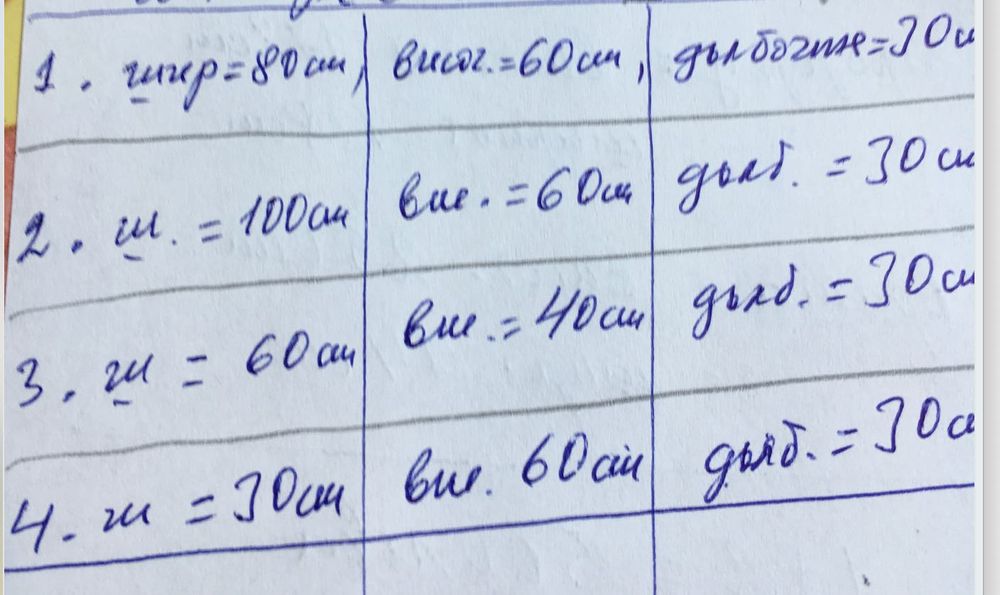 1. шир=80см, височ.=60см, дълбочин=30с
2. ш. = 100см вис. = 60см дълб. = 30см
3. ш = 60см вис. = 40см дълб. = 30см
4. ш = 30см вис. 60см дълб. = 30с